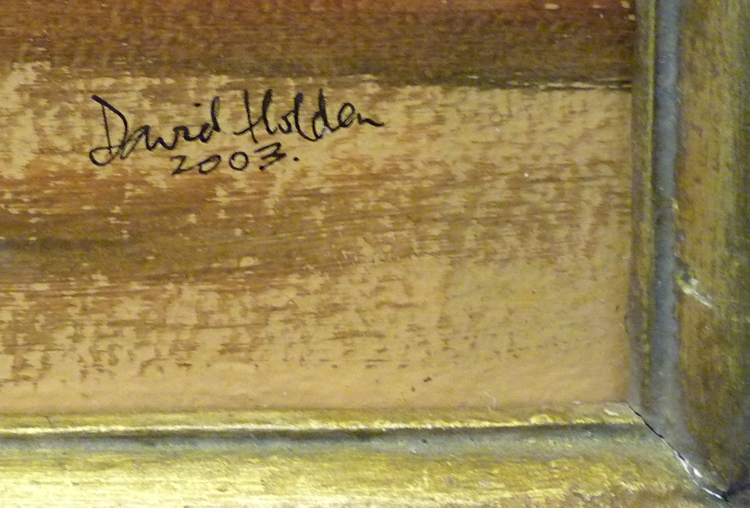 David Holden
2003.